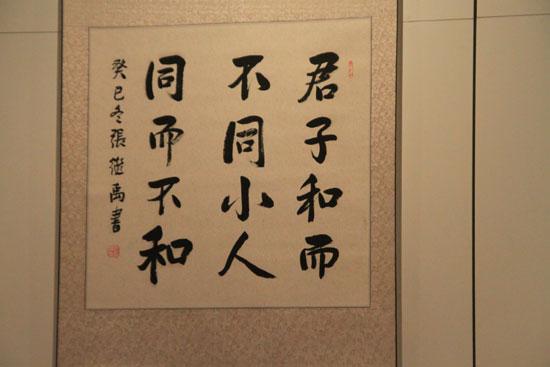 君子和而
不同小人
同而不和
癸巳冬張繼禹書